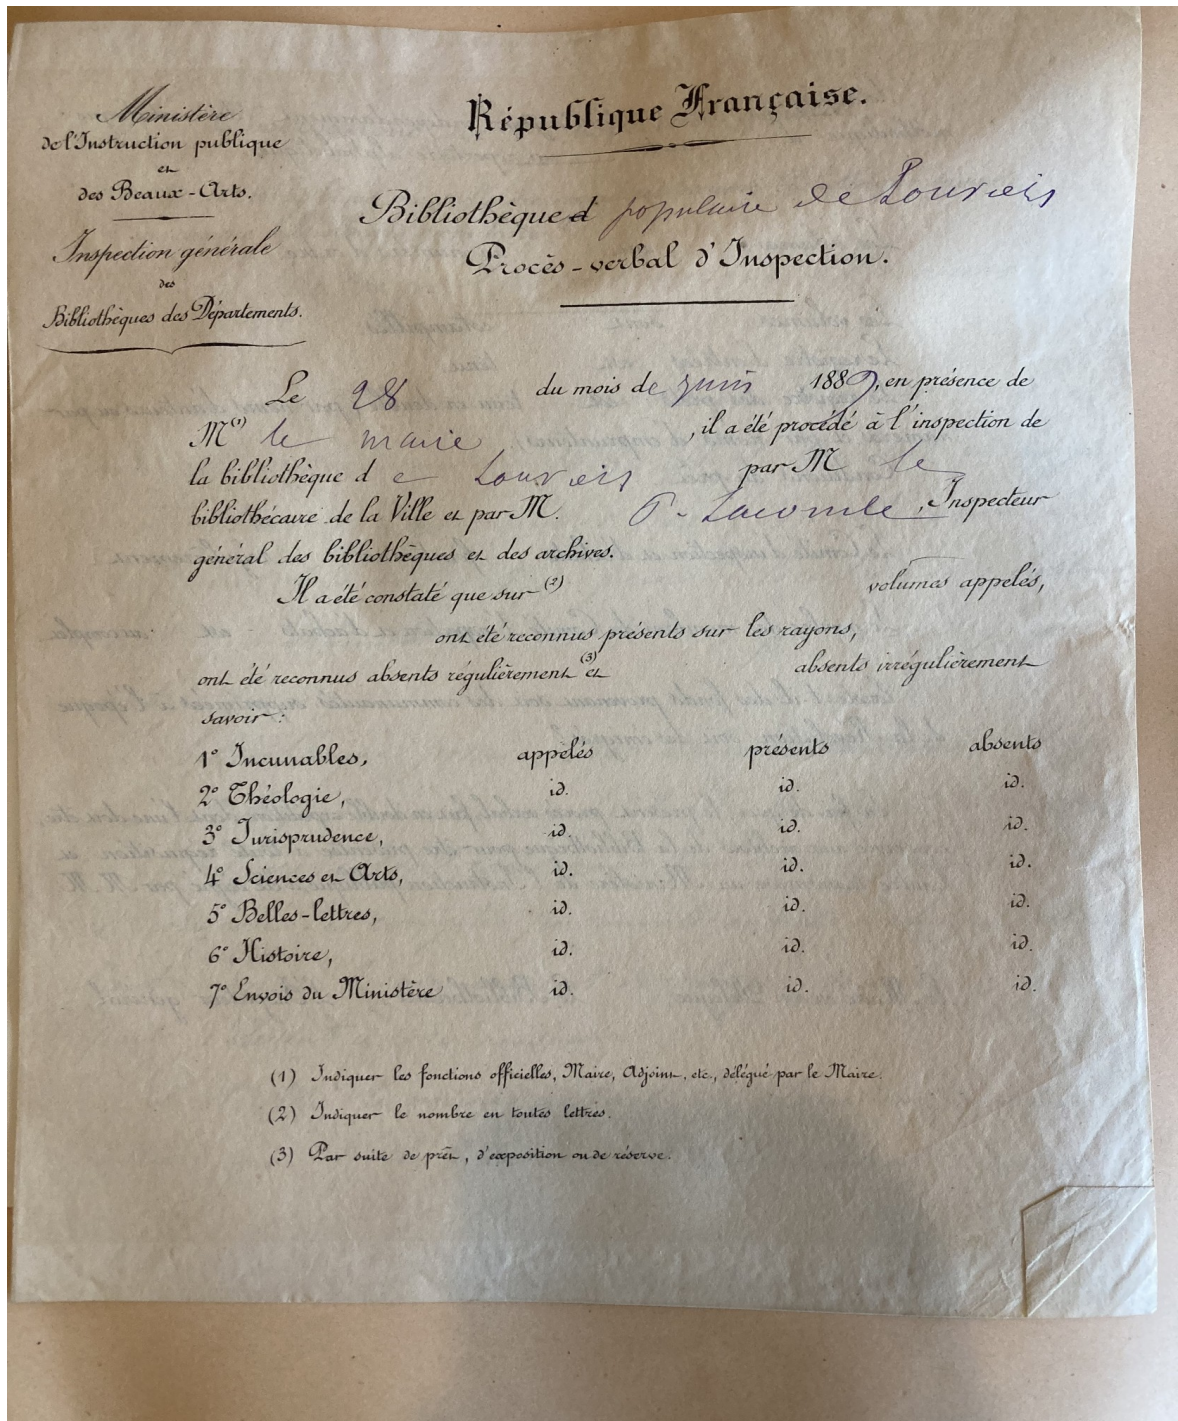 Ministère
de l'Instruction publique
et
des Beaux-Arts.
Inspection générale
des
Bibliothèques des Départements.
République Française.
Bibliothèque d populaire de Louviers
Procès-verbal d'Inspection.
Le 28 du mois de juin 1889, en présence de
M(1) le maire, il a été procédé à l'inspection de
la bibliothèque de Louviers par M le
bibliothécaire de la Ville et par M. P. Lacombe, Inspecteur
général des bibliothèques et des archives.
Il a été constaté que sur (2) volumes appelés,
ont été reconnus présents sur les rayons,
ont été reconnus absents régulièrement (3) et absents irrégulièrement
savoir :
1° Incunables, appelés présents absents
2° Théologie, id. id. id.
3° Jurisprudence, id. id. id.
4° Sciences et Arts, id. id. id.
5° Belles-lettres, id. id. id.
6° Histoire, id. id. id.
7° Envois du Ministère id. id. id.
(1) Indiquer les fonctions officielles, Maire, Adjoint, etc., délégué par le Maire.
(2) Indiquer le nombre en toutes lettres.
(3) Par suite de prêt, d'exposition ou de réserve.